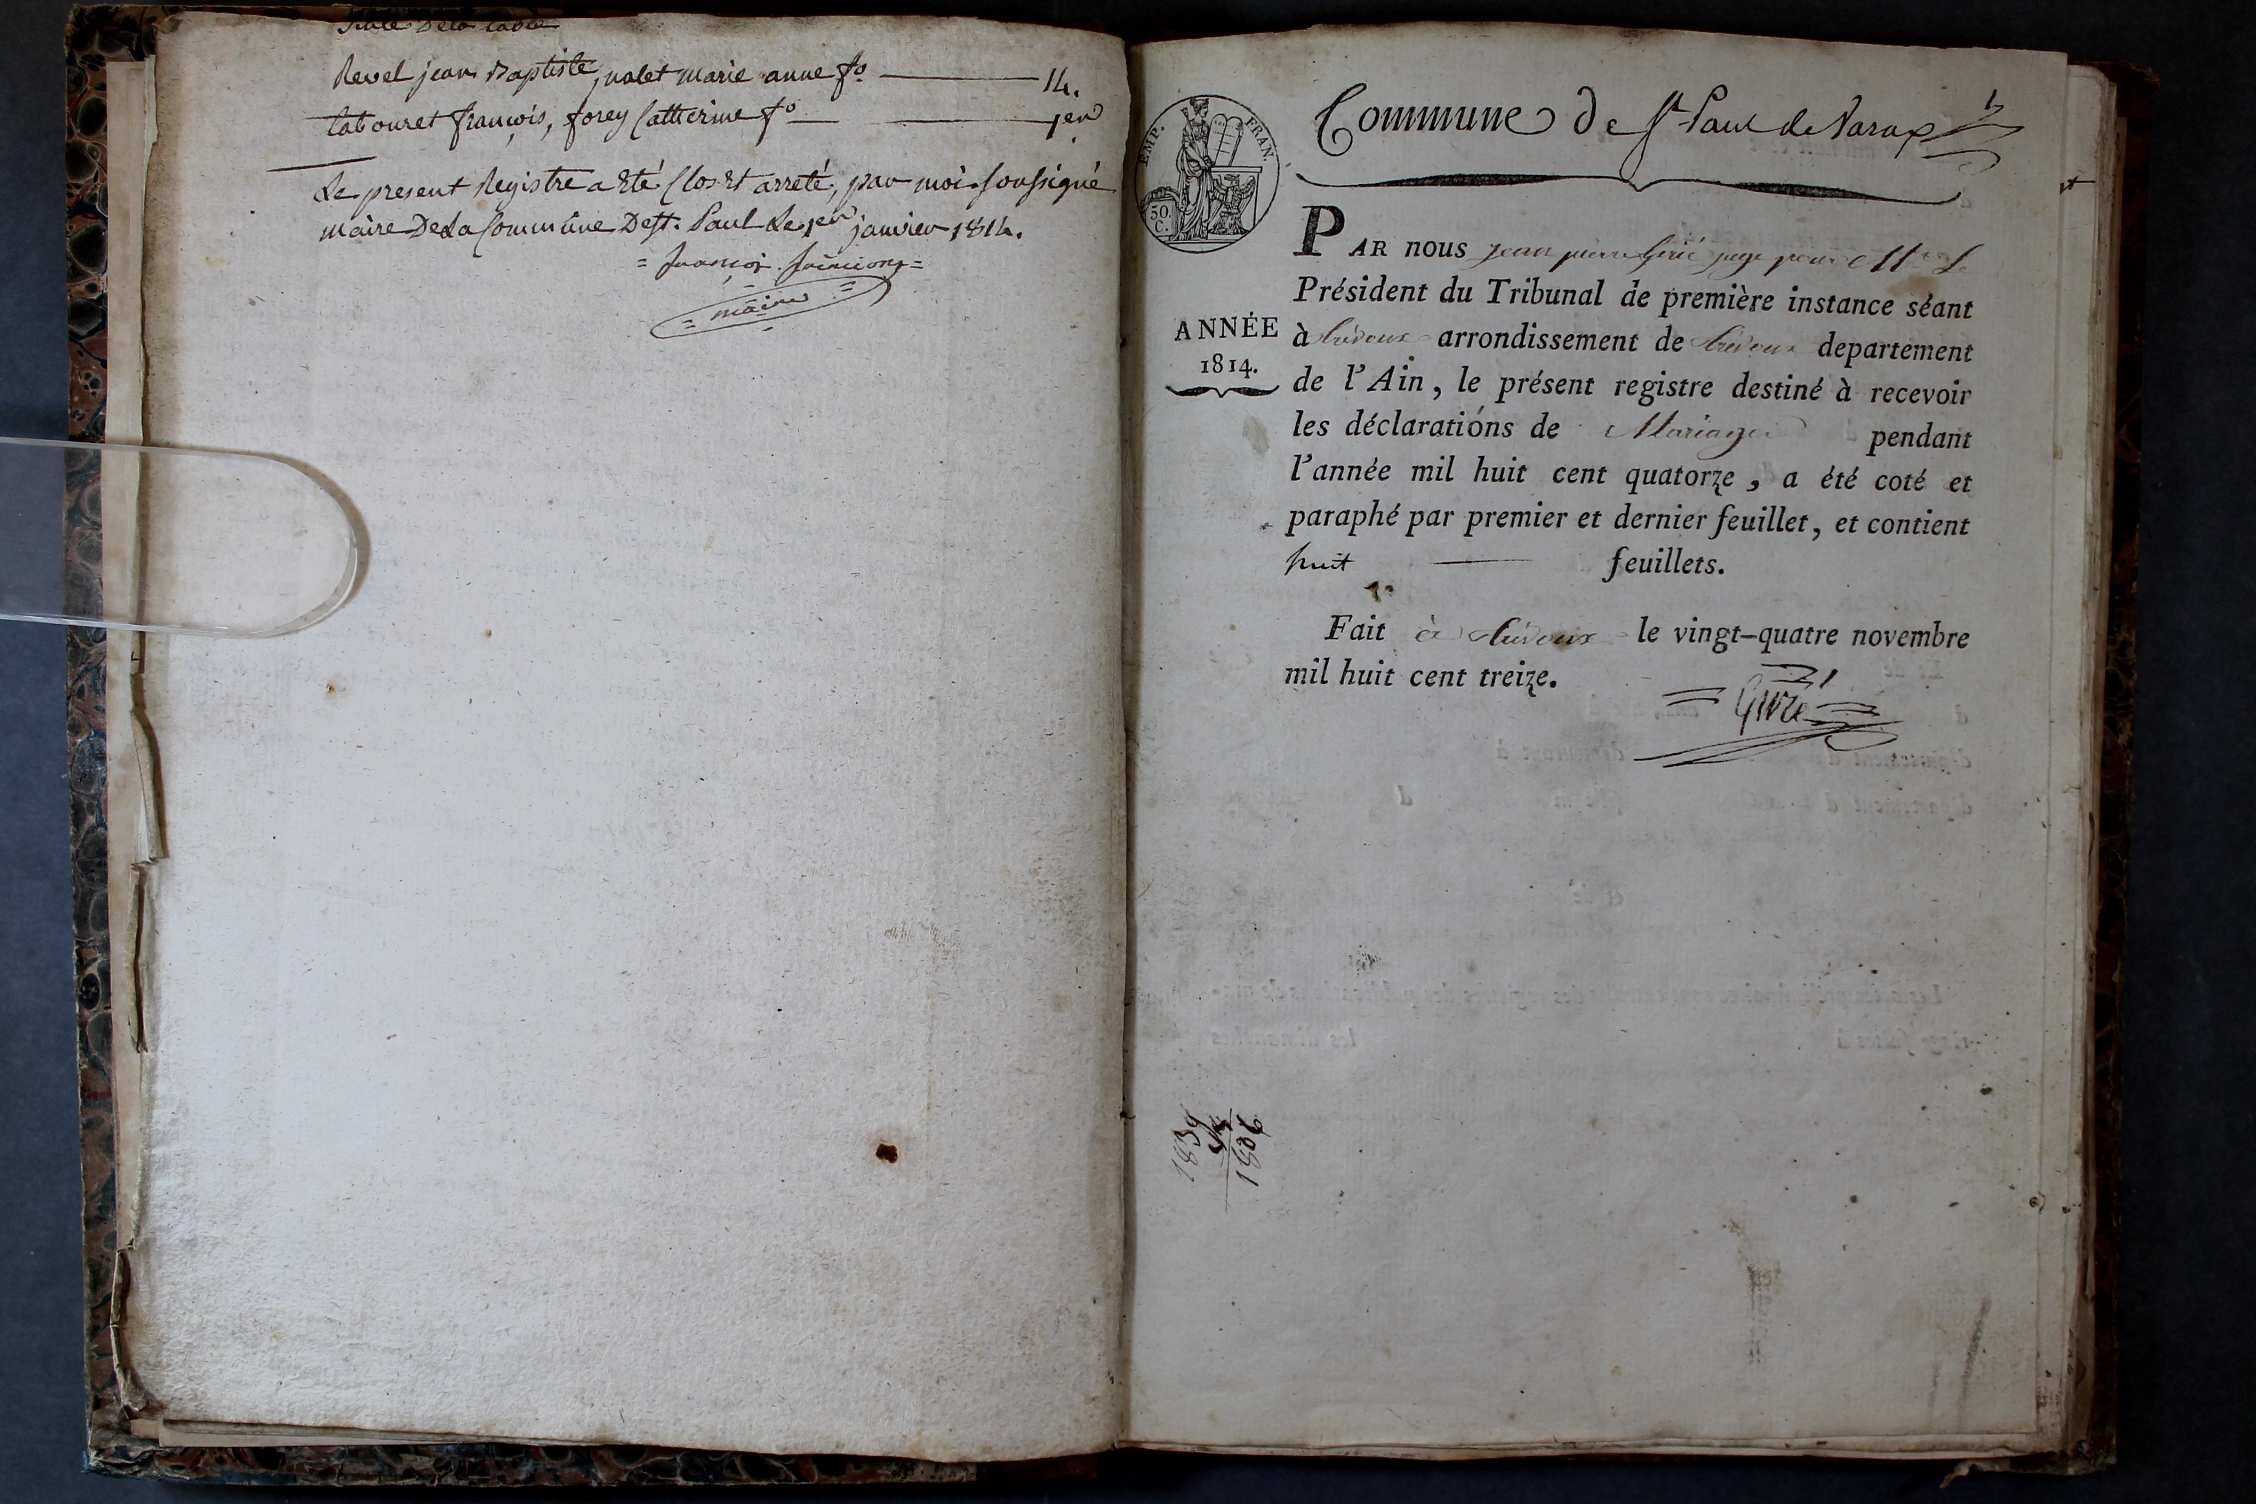 Suite De la table
Revel jean Baptiste, nalet marie anne fo 14.
labouret françois, forey Catherine fo 1er
Le present Registre a Eté Clos Et arreté, par moi soussigné
maire De La Commune De St. Paul Le 1er janvier 1814.
= françois =
= maire =
Commune de St Paul de Varax
1
EMP. FRAN.
50. C.
PAR nous jean pierre juge pour Mr Le
Président du Tribunal de première instance séant
ANNÉE
1814.
à trévoux arrondissement de trévoux departement
de l'Ain, le présent registre destiné à recevoir
les déclarations de Mariages pendant
l'année mil huit cent quatorze, a été coté et
paraphé par premier et dernier feuillet, et contient
huit feuillets.
Fait à trévoux le vingt-quatre novembre
mil huit cent treize.
1839
1806